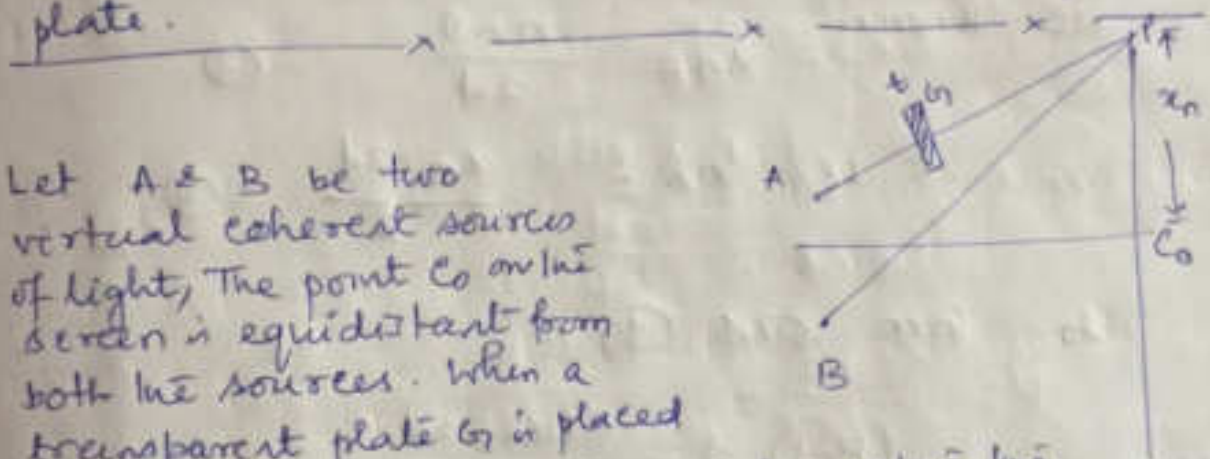 plate.
t G
P
xn
A
C0
B
Let A & B be two
virtual coherent sources
of light, The point C0 on the
screen is equidistant from
both the sources. When a
transparent plate G is placed